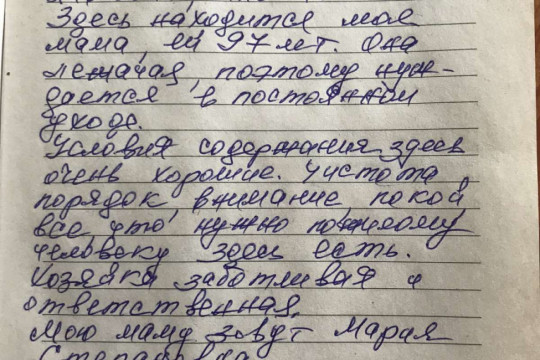 Здесь находится моя
мама, ей 97 лет. Она
лежачая, поэтому нуж-
дается в постоянном
уходе.
Условия содержания здесь
очень хорошие. Чистота,
порядок, внимание, покой,
все что нужно пожилому
человеку здесь есть.
Хозяйка заботливая и
ответственная.
Мою маму зовут Мария
Степановна